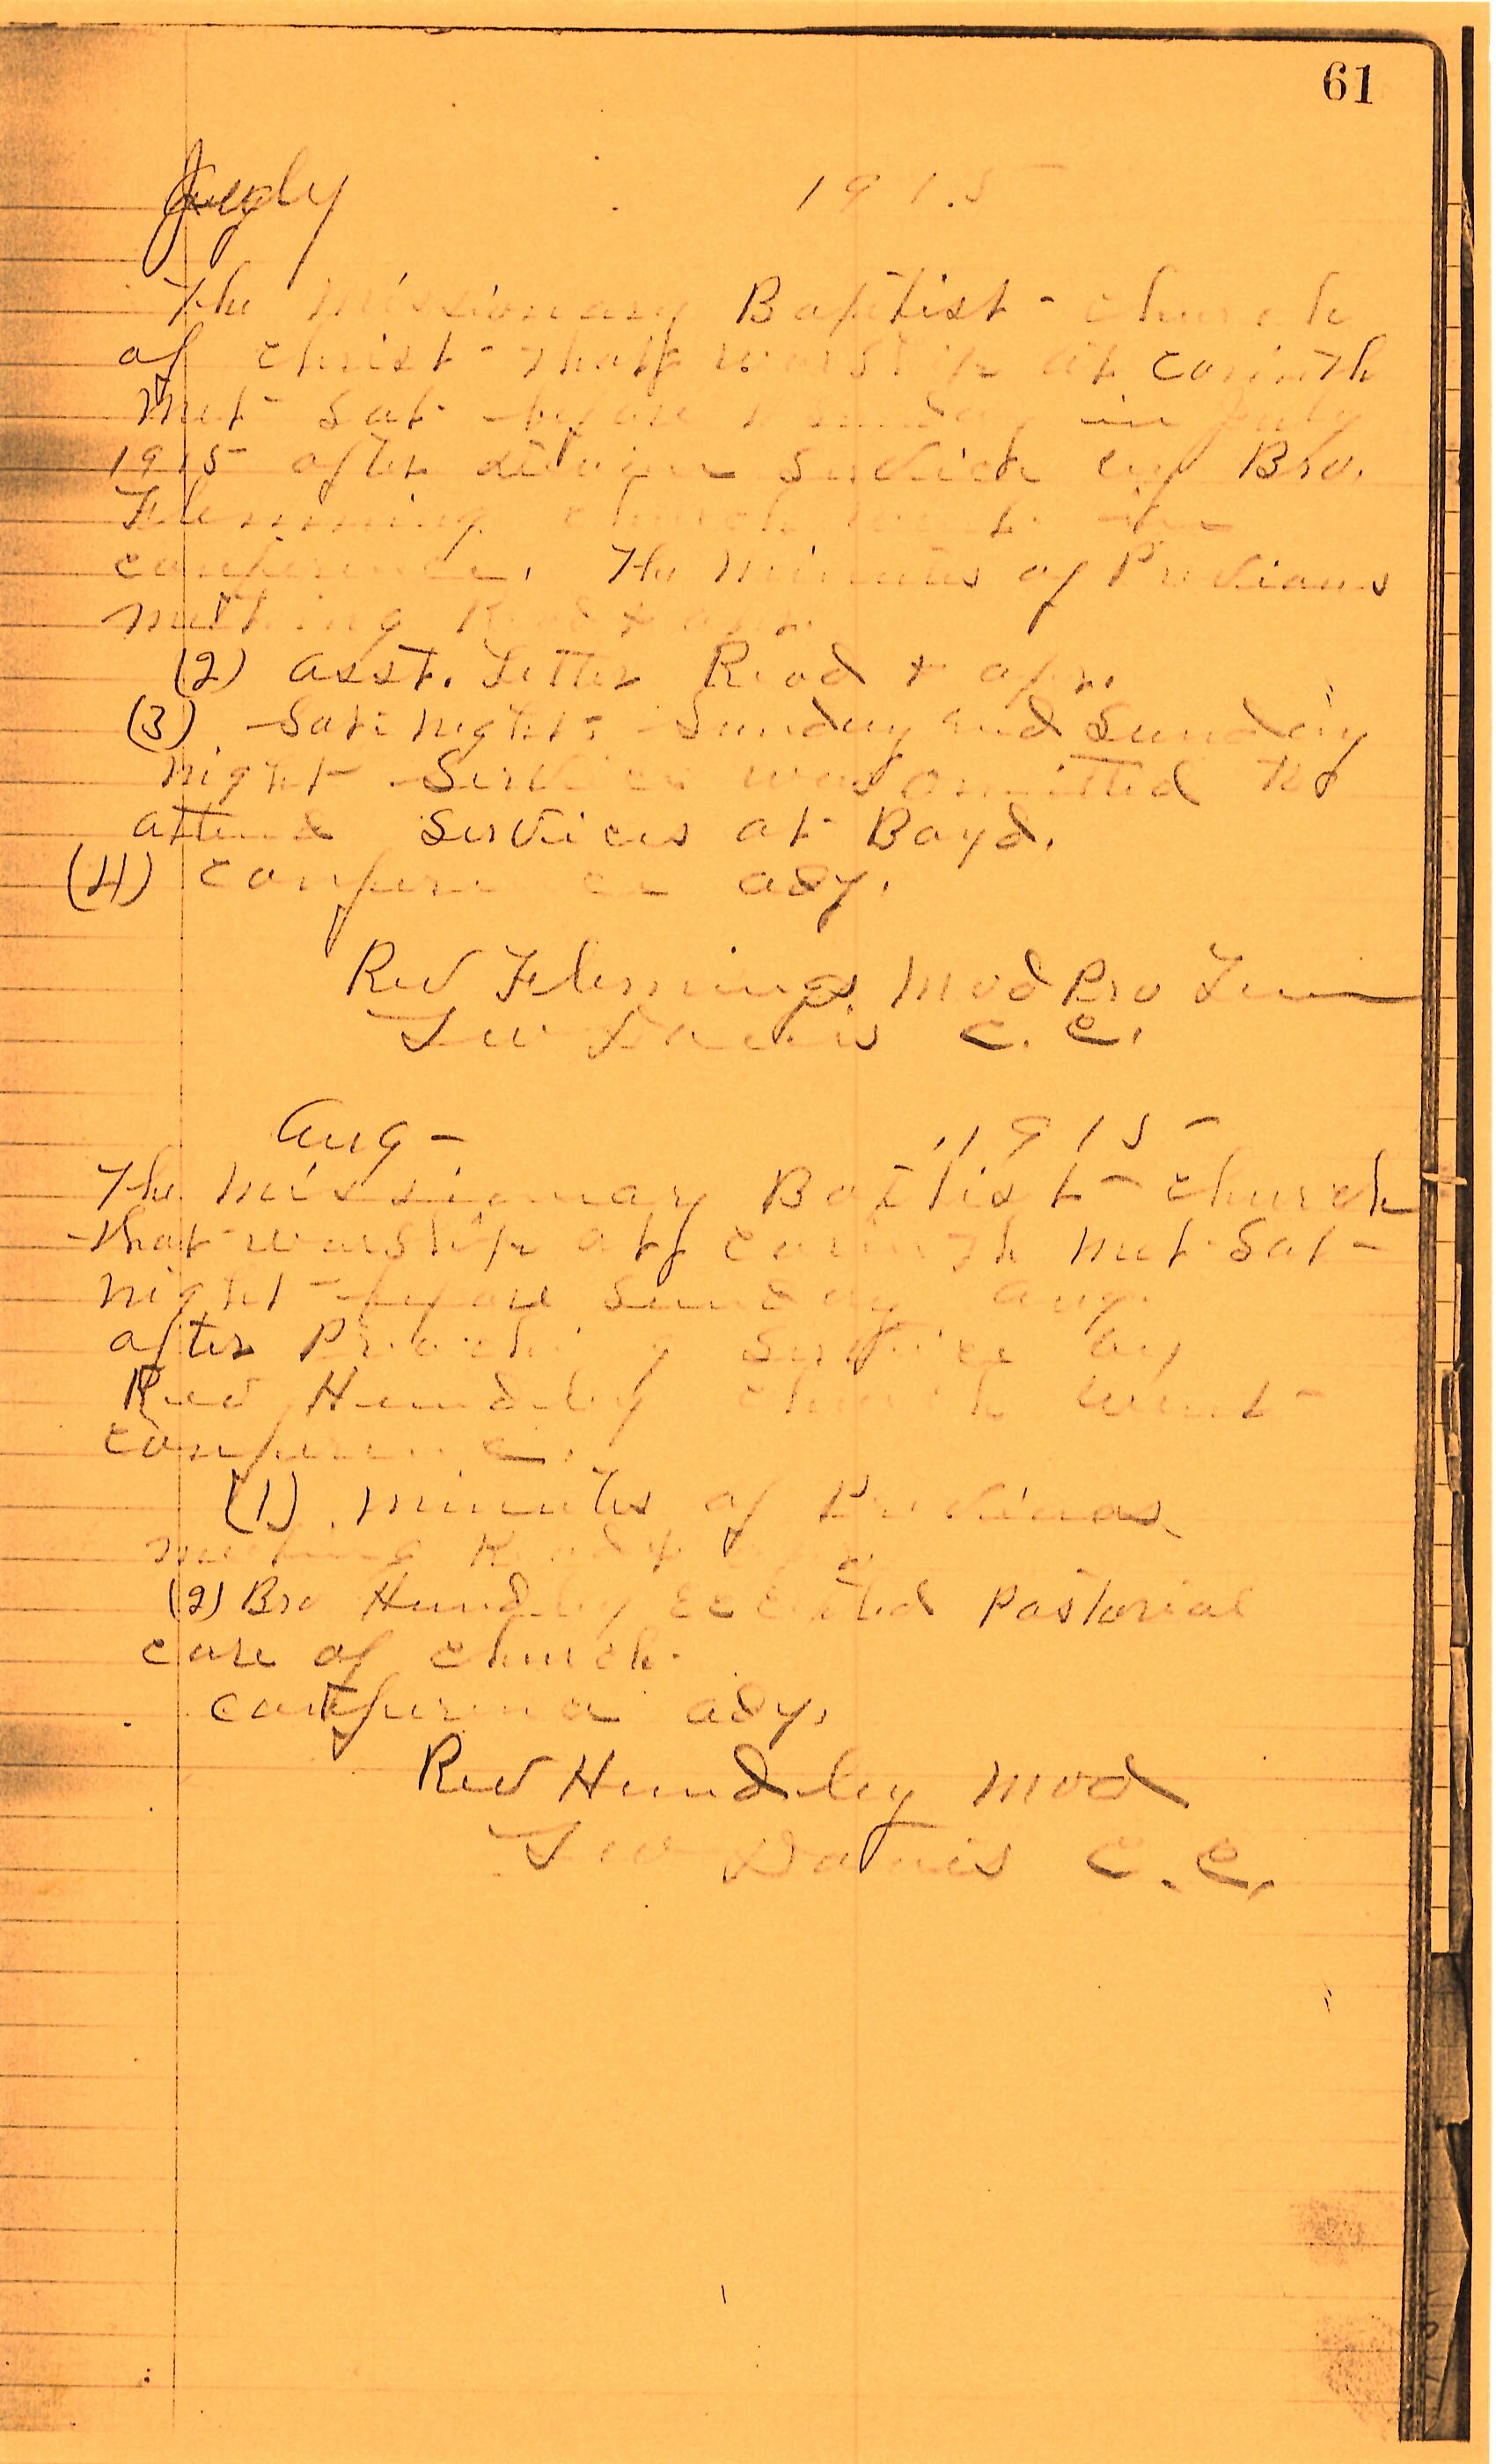 61
July 1915
The Missionary Baptist church
of christ that worship at corinth
met Sat before Sunday in July
1915 after divine Service by Bro.
Flemming church went in
conference. The Minutes of Previous
meeting Read & apr.
(2) asst. Letter Read & apr.
(3) Sat night Sunday and Sunday
night Services was omitted to
attend Services at Boyd.
(4) conference ady.
Rev Flemming Mod Pro Tem
Davis C. C.
Aug - 1915
The missionary Baptist church
that worship at corinth met Sat
night before Sunday Aug.
after Preaching Service by
Rev Hundley church went
conference.
(1) minutes of Previous
meeting Read &
(2) Bro Hundley Pastorial
care of church.
conference ady.
Rev Hundley Mod
Davis C. C.